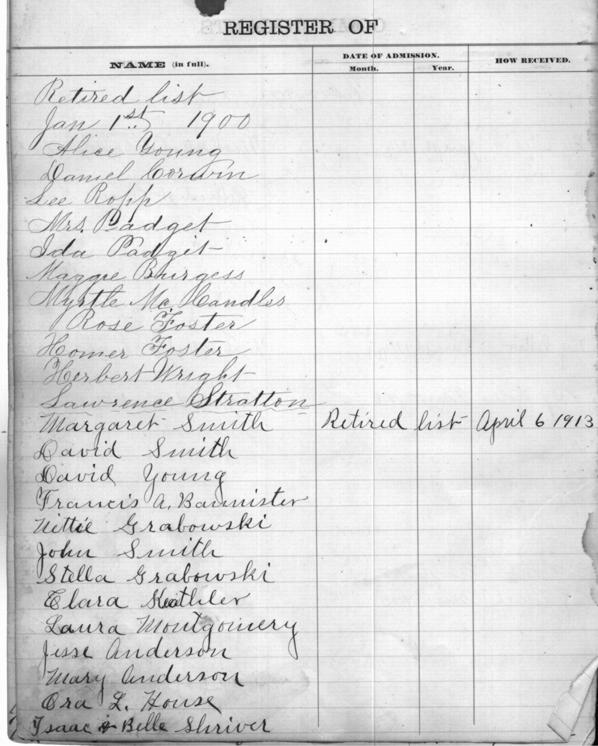 REGISTER OF
NAME (in full).
DATE OF ADMISSION.
HOW RECEIVED.
Month. Year.
Retired list
Jan 1st, 1900
Alice Young
Daniel Corwin
Lee Ropp
Mrs. Padget
Ida Padgit
Maggie Burgess
Myrtle Mc. Candles
Rose Foster
Homer Foster
Herbert Wright
Lawrence Stratton
Margaret Smith Retired list April 6 1913
David Smith
David Young
Francis A. Bannister
Nittie Grabowski
John Smith
Stella Grabowski
Clara
Laura Montgomery
Jesse Anderson
Mary Anderson
Ora L. House
Isaac & Belle Shriver